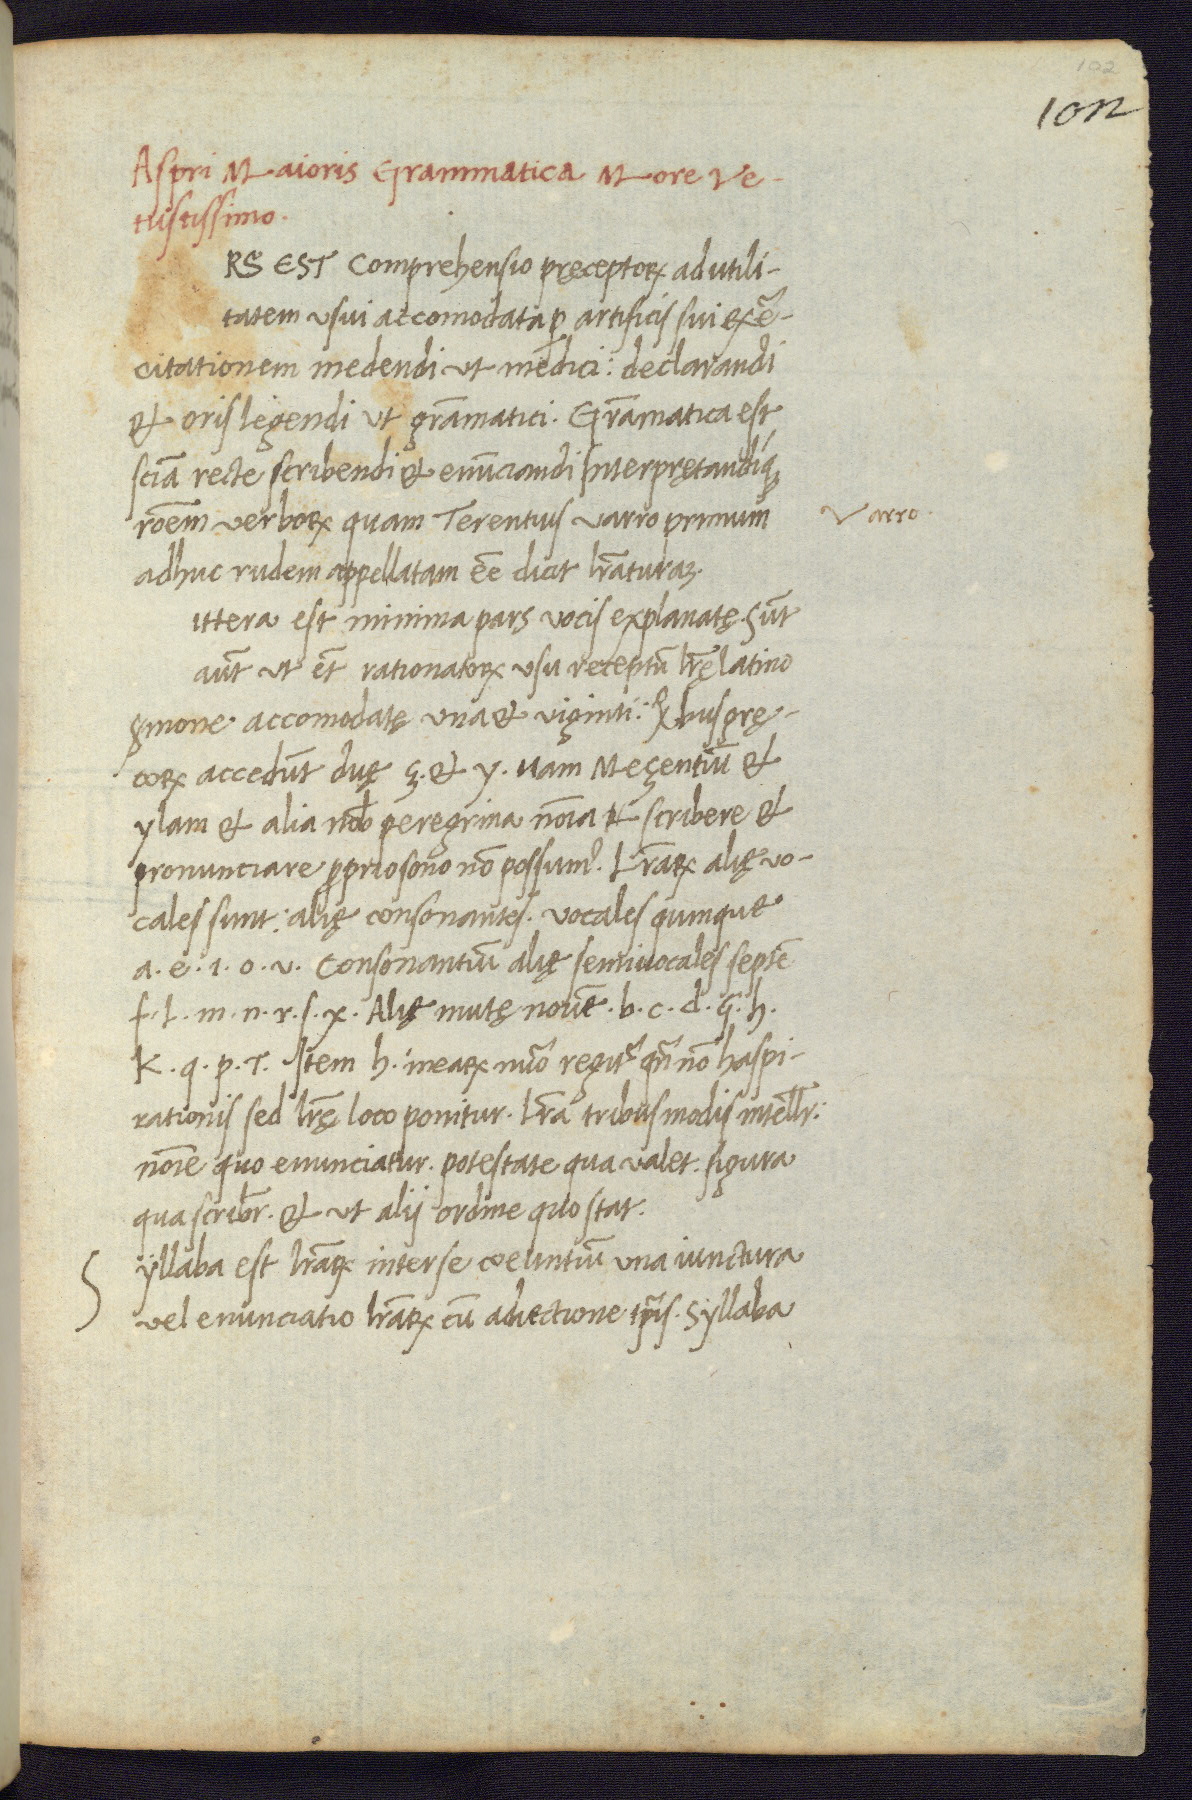 102
102
Aspri Maioris Grammatica More Ve-
tustissimo.
RS EST Comprehensio pręceptoꝝ ad utili-
tatem usui accomodata ꝑ artificis sui exē-
citationem medendi ut medici: declarandi
et oris legendi ut grāmatici. Grāmatica est
sciā recte scribendi et enūciandi Interpretandiq́
roēm verboꝝ quam Terentius varro primum
Varro.
adhuc rudem appellatam eē dicit lr̄aturaꝫ.
ittera est minima pars vocis explanatę. Sūt
aūt ut et̄ rationatoꝝ usu receptū lr̄ę latino
smone accomodatę una et viginti: qͥbus grę-
coꝝ accedūt duę ꝫ. et y. nam Meꝫentiū et
ylam et alia nōb peregrina noīa et scribere et
pronunciare ꝓprio sono nō possumꝰ. Lr̄aꝝ alię vo-
cales sunt: alię consonantes. vocales quinque
a. e. i. o. v. Consonantiū alię semivocales septē
f. l. m. n. r. s. x. Alię mutę novē. b. c. d. g. h.
K. q. p. T. Item h. in eaꝝ nūo regit̉ qn̄ nō haspi-
rationis sed lr̄ę loco ponitur. Lr̄a tribus modis intellr̄:
noīe quo enunciatur. potestate qua valet. figura
qua scribr̄. et ut alij ordine quo stat.
S yllaba est lr̄aꝝ inter se coeuntiū una iunctura
vel enunciatio lr̄aꝝ cū adiectione tp̄is. Syllaba